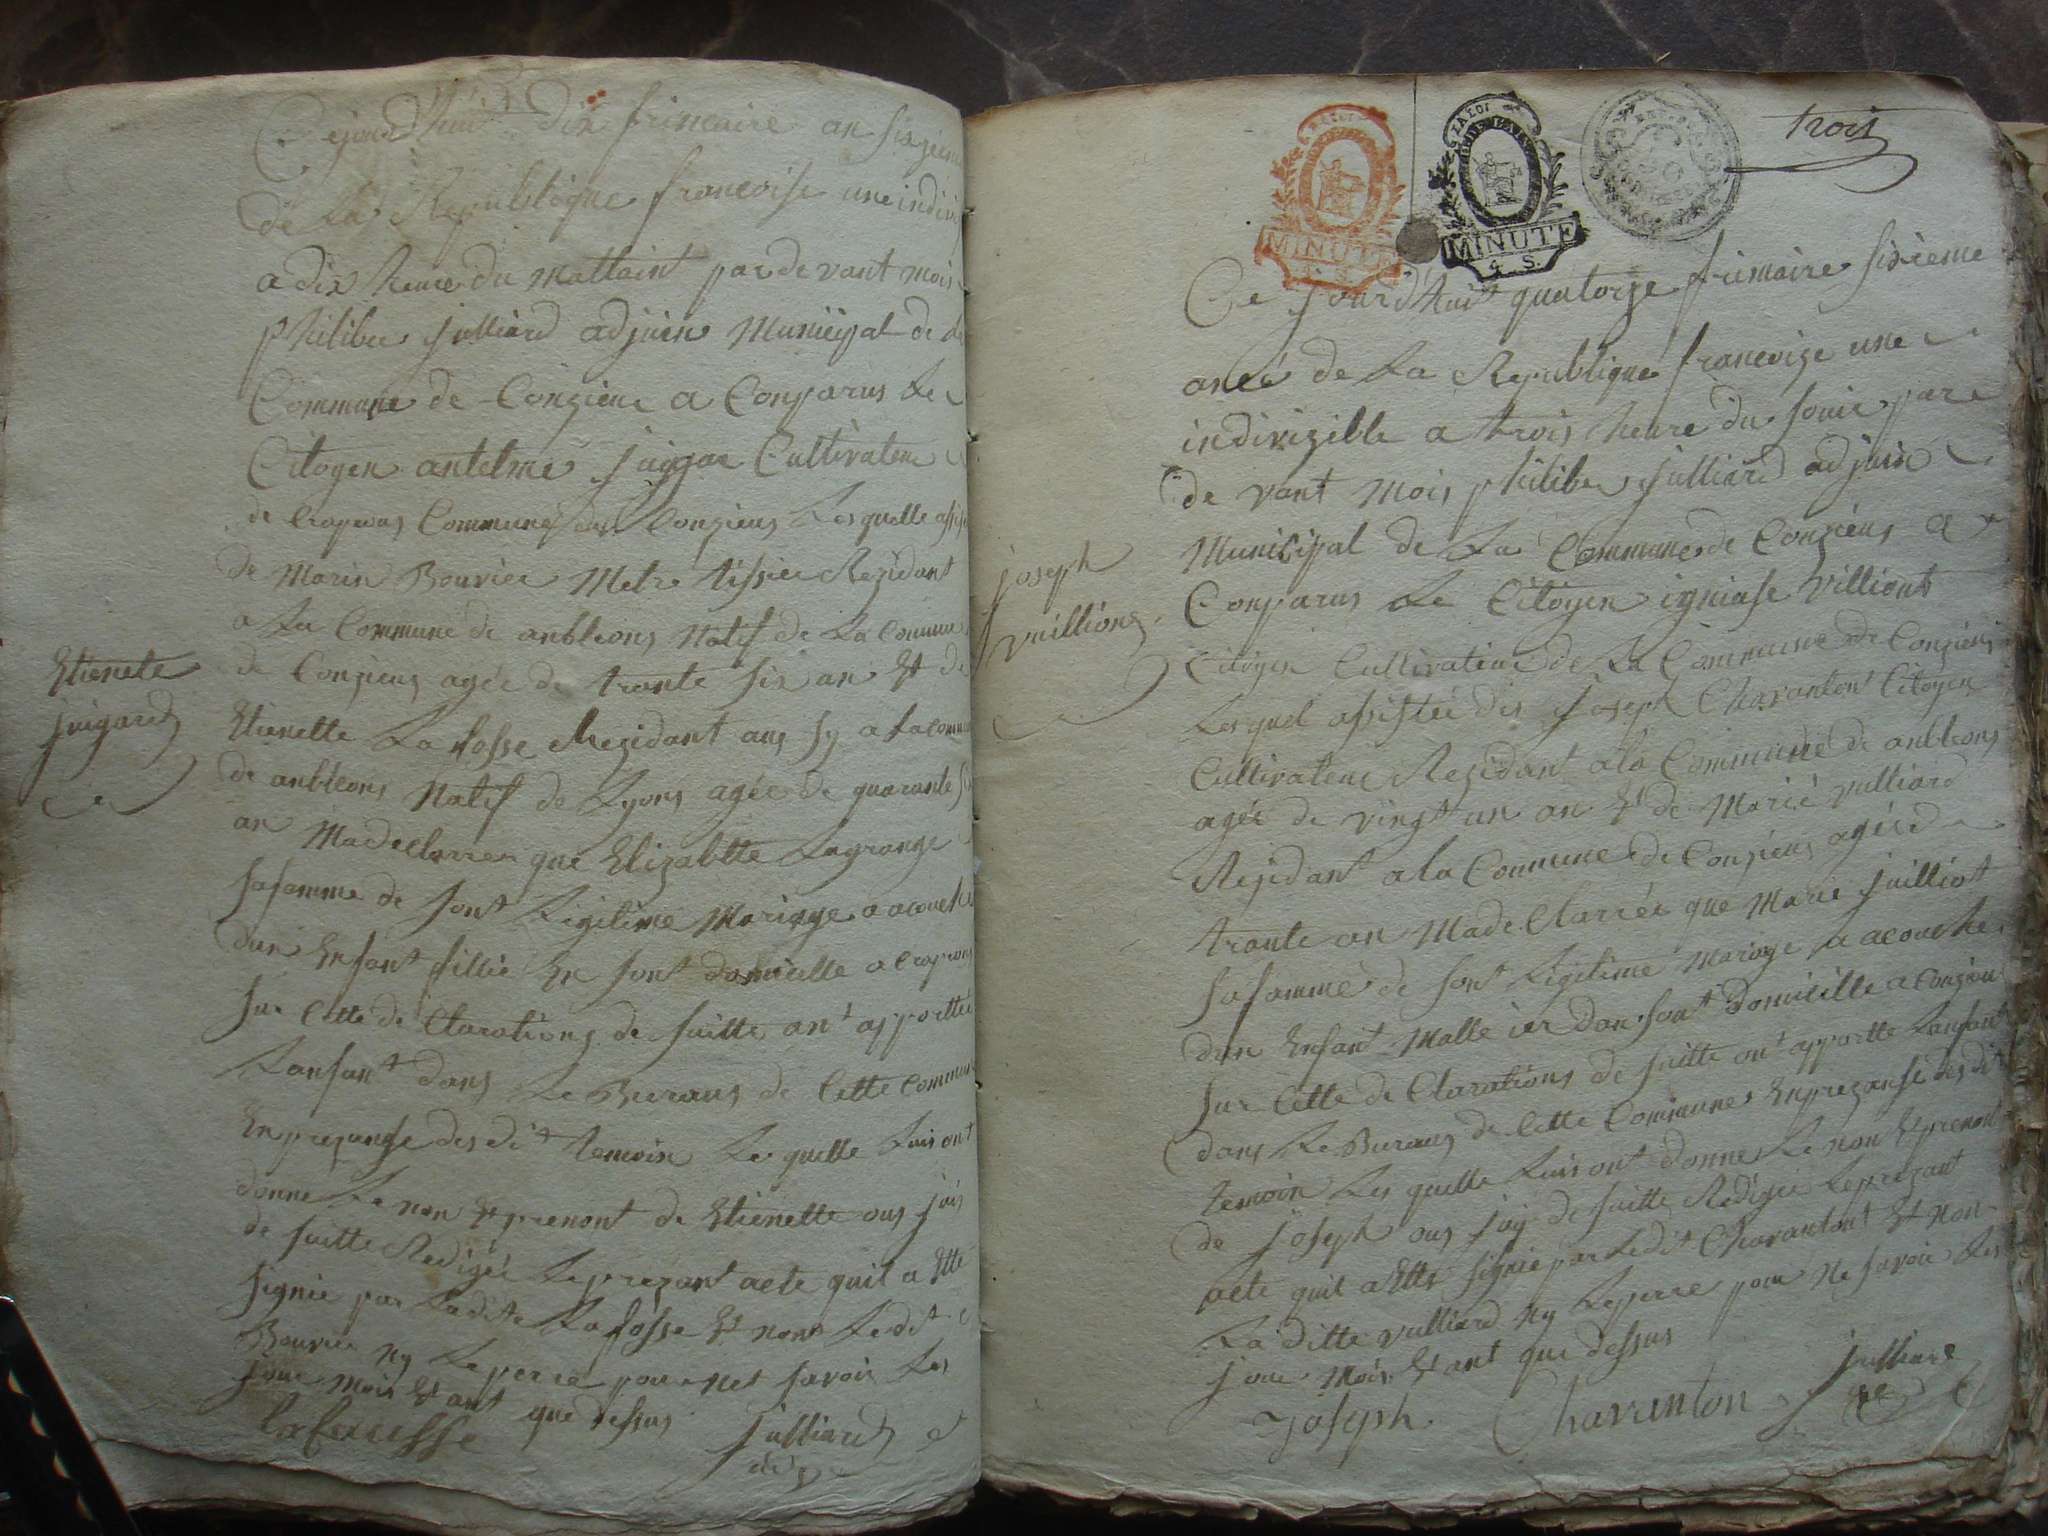 Ce jourdhuit dix frimaire an sixzieme
de La Republique francoise une indiv
a dix heure du mattaint par de vant mois
philiber julliard adjoin Municipal de la
Commune de Conzieus a Conparus Le
Citoyen antelme Cultivateur
de Crapeous Commune de Conzieus Lesquelle assis
de Marin Bouvier Metre tissier Rezidant
a La Commune de anbleons Natif de La Commune
de Conzieus agée de trante six an Et de
Etienette La fosse Rezidant aus sy a La commu
de anbleons Natif de Lyons agée de quarante
an Ma declarrer que Elizabette Lagrange
sa famme de sont Ligitime Mariage a acouche
dun Enfant fillie En sont domicille a Crapeous
sur Cette de Clarations de suitte ont apporttée
Lanfant dans Le Bureaus de Cette commune
En prezanse des dit temoin Le quelle Luis ont
donne Le non Et prenont de Etienette ous jais
de suitte Redigée Leprezant acte quil a Etté
signie par Ladite La fosse Et nont Ledit
Bouvier Ny Le perre pour net savoir Les
jour mois Et ant que dessus
lafeausse julliard
adj
Etienete
juigard
MINUTE
4 S.
MINUTE
4 S.
trois
Ce jourdhuit quatorze frimaire sixieme
aneé de La Republique francoize une
indivizible a trois heure du soire par
de vant mois philiber julliard adjoin
Municipal de La Commune de Conzieus a
Conparus Le Citoyen igniase Villiont
Citoyen Cultivateur de La Commune de Conzieus
Lesquel assistée dis joseph Charanton Citoyen
Cultivateur Rezidant a la Commune de anbleons
agée de vingt un an Et de Marie vulliard
Rezidant a la Commune de Conzieus agée d
trante an Ma de Clarrée que Marie juilliot
sa famme de sont Ligitime Mariage a acouche
dun Enfant Malle ier dan sont domicille a Conzieu
sur Cette de Clarations de suitte ont apportte Lanfant
dans Le Bureaus de Cette Commune En prezanse des dit
temoin Les quelle Luis ont donne Le non Et prenont
de joseph ous jay de suitte Redigée Leprezant
acte quil a Etté signie par Ledit Charantont Et non
La ditte vulliard Ny Le perre pour Ne savoir Les
jour Mois Et ant que dessus
Joseph Charanton julliard
joseph
vuillions